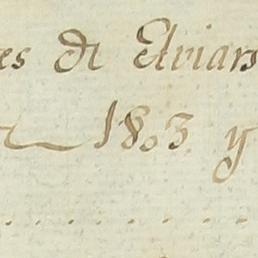 es de Elviars
1803 y